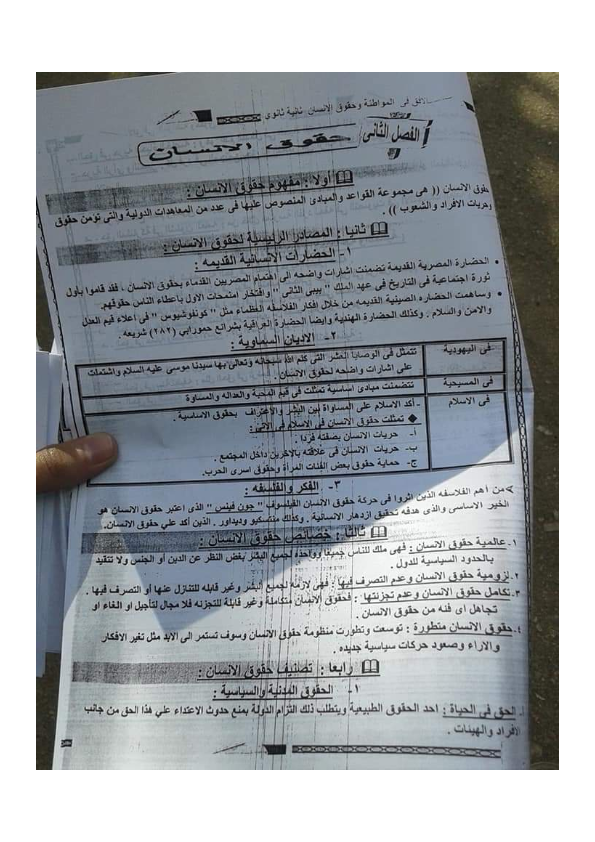 فى المواطنة وحقوق الانسان ثانية ثانوى
الفصل الثانى
حقوق الانسان
أولا : مفهوم حقوق الانسان :
حقوق الانسان (( هى مجموعة القواعد والمبادئ المنصوص عليها فى عدد من المعاهدات الدولية والتى تؤمن حقوق
وحريات الافراد والشعوب )) .
ثانيا : المصادر الرئيسية لحقوق الانسان :
١- الحضارات الانسانية القديمه :
• الحضارة المصرية القديمة تضمنت اشارات واضحه الى اهتمام المصريين القدماء بحقوق الانسان ، فقد قاموا بأول
ثورة اجتماعية فى التاريخ فى عهد الملك " بيبى الثانى " وافتخار امنمحات الاول بأعطاء الناس حقوقهم.
• وساهمت الحضاره الصينية القديمه من خلال افكار الفلاسفه العظماء مثل " كونفوشيوس " فى أعلاء قيم العدل
والامن والسلام . وكذلك الحضارة الهندية وايضا الحضارة العراقية بشرائع حمورابي (٢٨٢) شريعه .
٢- الاديان السماوية :
فى اليهودية
تتمثل فى الوصايا العشر التى كلم الله سبحانه وتعالى بها سيدنا موسى عليه السلام واشتملت
على اشارات واضحه لحقوق الانسان .
فى المسيحية
تتضمنت مبادئ اساسية تمثلت فى قيم المحبة والعداله والمساوة
فى الاسلام
- أكد الاسلام على المساواة بين البشر والأعتراف بحقوق الاساسية .
◆ تمثلت حقوق الانسان فى الاسلام فى الاتى :
أ- حريات الانسان بصفته فردا .
ب- حريات الانسان فى علاقته بالاخرين داخل المجتمع .
ج- حماية حقوق بعض الفئات المرأة وحقوق اسرى الحرب.
٣- الفكر والفلسفه :
➢ من أهم الفلاسفه الذين اثروا فى حركة حقوق الانسان الفيلسوف " جون فينس " الذى اعتبر حقوق الانسان هو
الخير الاساسى والذى هدفه تحقيق ازدهار الانسانية . وكذلك منتسكيو وديداور . الذين أكد علي حقوق الانسان.
ثالثا : خصائص حقوق الانسان :
١- عالمية حقوق الانسان : فهى ملك للناس جميعا وواحدة لجميع البشر بغض النظر عن الدين أو الجنس ولا تتقيد
بالحدود السياسية للدول .
٢- لزومية حقوق الانسان وعدم التصرف فيها : فهي لازمة لجميع البشر وغير قابله للتنازل عنها أو التصرف فيها .
٣- تكامل حقوق الانسان وعدم تجزئتها : فحقوق الانسان متكاملة وغير قابلة للتجزئه فلا مجال لتأجيل او الغاء او
تجاهل اى فئه من حقوق الانسان .
٤- حقوق الانسان متطورة : توسعت وتطورت منظومة حقوق الانسان وسوف تستمر الى الابد مثل تغير الافكار
والاراء وصعود حركات سياسية جديده .
رابعا : تصنيف حقوق الانسان :
١- الحقوق المدنية والسياسية :
أ- الحق فى الحياة : احد الحقوق الطبيعية ويتطلب ذلك التزام الدولة بمنع حدوث الاعتداء علي هذا الحق من جانب
الافراد والهيئات .